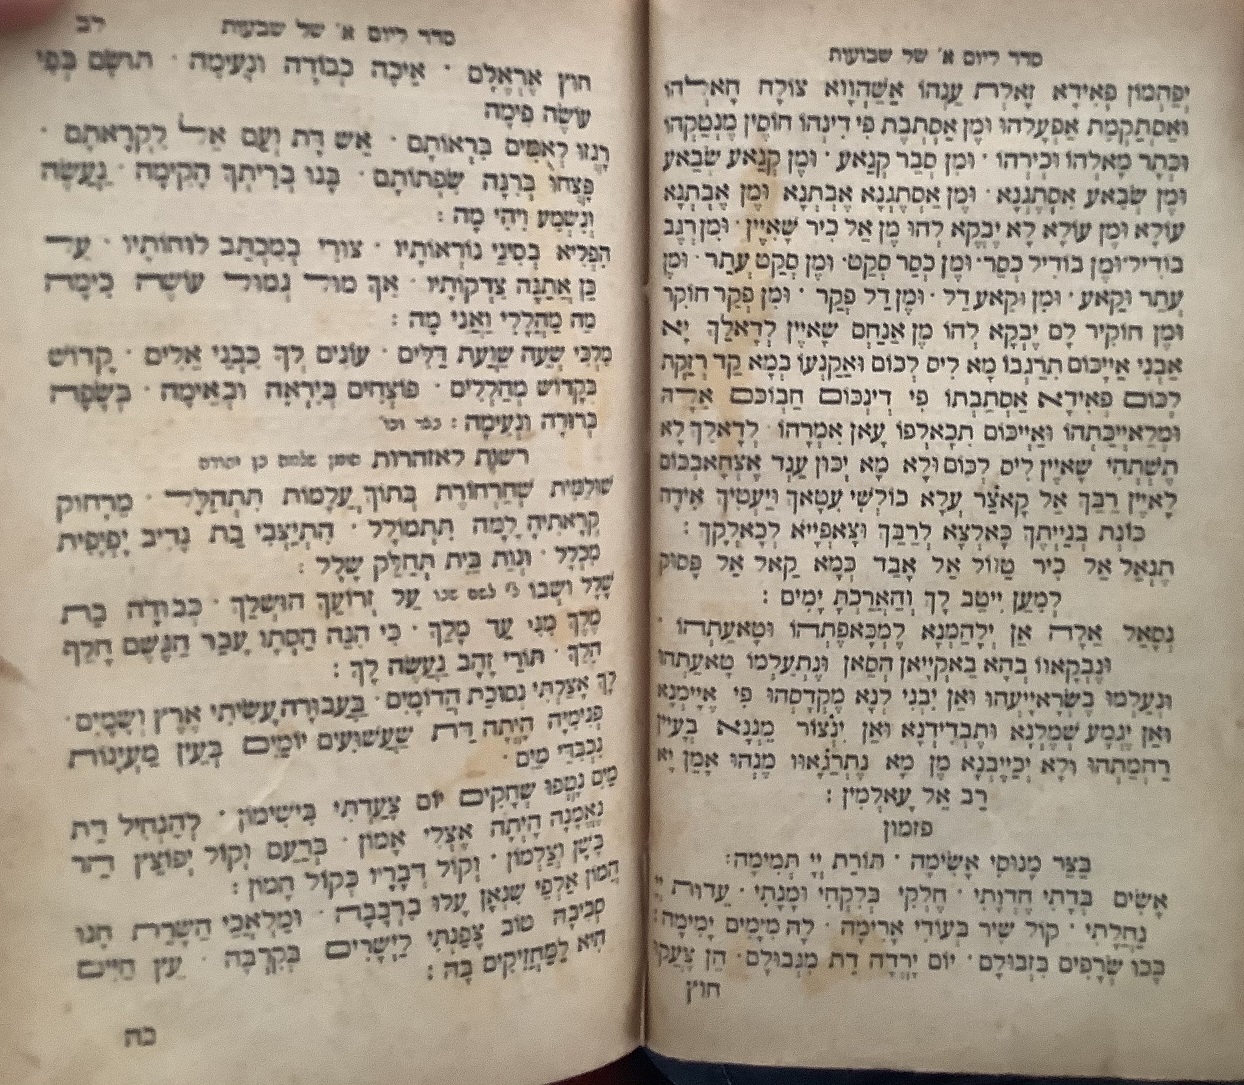 סדר ליום א׳ של שבועות
יִפַהְמוּן פָאִידָא זָאלַת עַנְהוֹ אַשַהְוָוא צוֹלַח חָאלְהוּ
וּאַסְתַקְמַת אַפְעָלְהוּ וּמֶן אַסְתְבַת פִי דִינְהוּ חוֹסִין מֶנְטַקְהוּ
וּכְתַר מָאלְהוּ וּכִירְהוּ · וּמֶן סְבַר קְנַאע · וּמֶן קְנַאע שְׂבַאע
וּמֶן שְׂבַאע אִסְתַגְנָא · וּמֶן אַסְתַגְנָא אֶבְתַנָא וּמֶן אֶבְתַנָא
עוֹלָא וּמֶן עוֹלָא לָא יִבְקָא לְהוּ מֶן אַל כִיר שָׁאיְין · וּמִן רְגַב
בּוֹדִיל · וּמֶן בּוֹדִיל כְסַר · וּמֶן כְסַר סְקַט · וּמֶן סְקַט עְתַר · וּמֶן
עְתַר וּקַאע · וּמִן וּקַאע דַל · וּמֶן דַל פְקַר · וּמִן פְקַר חוֹקִר
וּמֶן חוֹקִיר לַם יִבְקָא לְהוּ מֶן אַנַחַם שָׁאיְין לְדָאלַךְ יָא
אַבְנִי אַיְיכוּם תִרְגְבוּ מָא לִיס לְכוּם וּאַקְנְעוּ בְמָא קַד רְזַקְת
לְכוּם פָאִידָא אַסְתַבְתוּ פִי דִינְכוּם חַבּוֹכּם אַלָה
וּמַלָאיְיכַתְהוּ וּאַיְיכוּם תִכָאלְפוּ עָאן אִמְרָהוּ · לְדָאלַךְ לָא
תִשְׁתְהִי שָׁאיְין לִיס לְכוּם וּלָא מָא יְכוּן עַנְד אַצְחָאבְכוּם
לָאיְין רַבַּךְ אַל קָאצַר עְלָא כוֹלְשִׁי עִטָאךְ וּיַעְטִיךְ אִידָה
כוּנְת בְנְיַיתַךְ כָאלְצָא לְרַבַּךְ וּצָאפִיָּיא לְכָאלְקַךְ :
תְנַאֵל אַל כִיר טַוּוֹל אַל אָבַד כְּמָא קַאל אַל פָּסוּק
לְמַעַן יִיטַב לָךְ וְהַאֲרַכְתָּ יָמִים :
נְסָאל אַלָה אַן יְלָהַמְנָא לְמְכָאפְתְהוּ וּטָאעְתְהוּ ·
וּנְבְקָאווּ בְהָא בַאקְיָיאן הְסַאן וּנְתְעַלְמוּ טָאעַתְהוּ
וּנְעַלְמוּ בְשְׂרָאיְיעְהוּ וּאַן יִבְנִי לְנָא מַקְדְסְהוּ פִי אַיְימְנָא
וּאַן יִגְמַע שְׁמְלְנָא וּתַבְדִידְנָא וּאַן יִנְצוּר מַנְנָא בְעַיְין
רַחְמַתְהוּ וּלָא יְכַיְיבְנָא מֶן מָא נְתְרַגָאווּ מֶנְהוּ אָמַן יָא
רַב אֵל עָאלְמִין :
פזמון
בַּצַּר מְנוּסִי אֲשִׂימָה · תּוֹרַת יְיָ תְּמִימָה :
אָשִׂים בְּדָתִי חֶדְוָתִי · חֶלְקִי בְּלִקְחִי וּמְנָתִי · עֵדוּת יְיָ
נַחֲלָתִי · קוֹל שִׁיר בְּעוֹדִי אָרִימָה · לָהּ מִיָּמִים יָמִימָה :
בָּכוּ שְׂרָפִים בִּזְבוּלָם · יוֹם יָרְדָה דָת מִגְּבוּלָם · הֵן צָעֲקוּ
חוץ
סדר ליום א׳ של שבועות לב
חוּץ אֶרְאֶלָּם · אֵיכָה כְבוֹדָה וּנְעִימָה · תּוּשַׂם בְּפִי
עוֹשֶׂה פִימָה
רָגְזוּ לְאֻמִּים בִּרְאוֹתָם · אֵשׁ דָּת וְעַם אֵל לִקְרָאתָם ·
פָּצְחוּ בְּרִנָּה שִׂפְתוֹתָם · בָּנוּ בְּרִיתְךָ הָקִימָה · נַעֲשֶׂה
וְנִשְׁמַע וִיהִי מָה :
הִפְלִיא בְּסִינַי נוֹרְאוֹתָיו · צוּרִי בְּמִכְתַּב לוּחוֹתָיו · עַל
כֵּן אֲתַנֶּה צִדְקוֹתָיו · אֵיךְ מוּל גְּמוּל עוֹשֶׂה כִימָה
מַה מַהֲלָלִי וַאֲנִי מָה :
מַלְכִּי שְׁעֵה שַׁוְעַת דַּלִּים · עוֹנִים לְךָ כִּבְנֵי אֵלִים · קָדוֹשׁ
בְּקָדוֹשׁ מְהַלְּלִים · פּוֹצְחִים בְּיִרְאָה וּבְאֵימָה · בְּשָׂפָה
בְּרוּרָה וּנְעִימָה : ככר וכו׳
רשות לאזהרות סימן שלמה בן יהודה
שׁוּלַמִּית שְׁחַרְחוֹרֶת בְּתוֹךְ עֲלָמוֹת תִּתְהַלָּל · מֵרָחוֹק
קְרָאתִיהָ לָמָּה תִּתְמוֹלָל · הִתְיַצְּבִי בַּת נָדִיב יְפֵיפִית
מִכְלָל · וּנְוַת בַּיִת תְּחַלֵּק שָׁלָל :
שָׁלָל וְשָׁבוּ עַל זְרוֹעֵךְ הוּשְׁלַךְ · כְּבוּדָּה בַּת
מֶלֶךְ מִנִּי עַד מֶלֶךְ · כִּי הִנֵּה הַסְּתָו עָבַר הַגֶּשֶׁם חָלַף
הָלַךְ · תּוֹרֵי זָהָב נַעֲשֶׂה לָךְ :
לָךְ אָצַלְתִּי נְסוּכַת הֲדוֹמִים · בַּעֲבוּרָהּ עָשִׂיתִי אֶרֶץ וְשָׁמַיִם ·
פְּנִימִיָּה הָיְתָה דַּת שַׁעֲשׁוּעִים יוֹמַיִם בְּעֵין מַעְיָנוֹת
נִכְבַּדֵּי מָיִם ·
מַיִם נָטְפוּ שְׁחָקִים יוֹם צָעַדְתִּי בִּישִׁימוֹן · לְהַנְחִיל דָּת
נֶאֱמָנָה הָיְתָה אֶצְלִי אָמוֹן · בְּרַעַם וְקוֹל יְפוֹצֵץ הַר
בָּשָׁן וְצַלְמוֹן · וְקוֹל דְּבָרָיו כְּקוֹל הָמוֹן :
הָמוֹן אַלְפֵי שִׁנְאָן עָלוּ בִּרְכָבָה · וּמַלְאֲכֵי הַשָּׁרֵת חָנוּ
סְבִיבָהּ טוֹב צָפַנְתִּי לַיְשָׁרִים בְּקִרְבָּהּ · עֵץ חַיִּים
הִיא לַמַּחֲזִיקִים בָּהּ :
כה